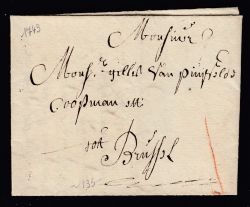 1743
Monsieur
Mons.r gillis Van
Coopman ett
tot
Brussel
135